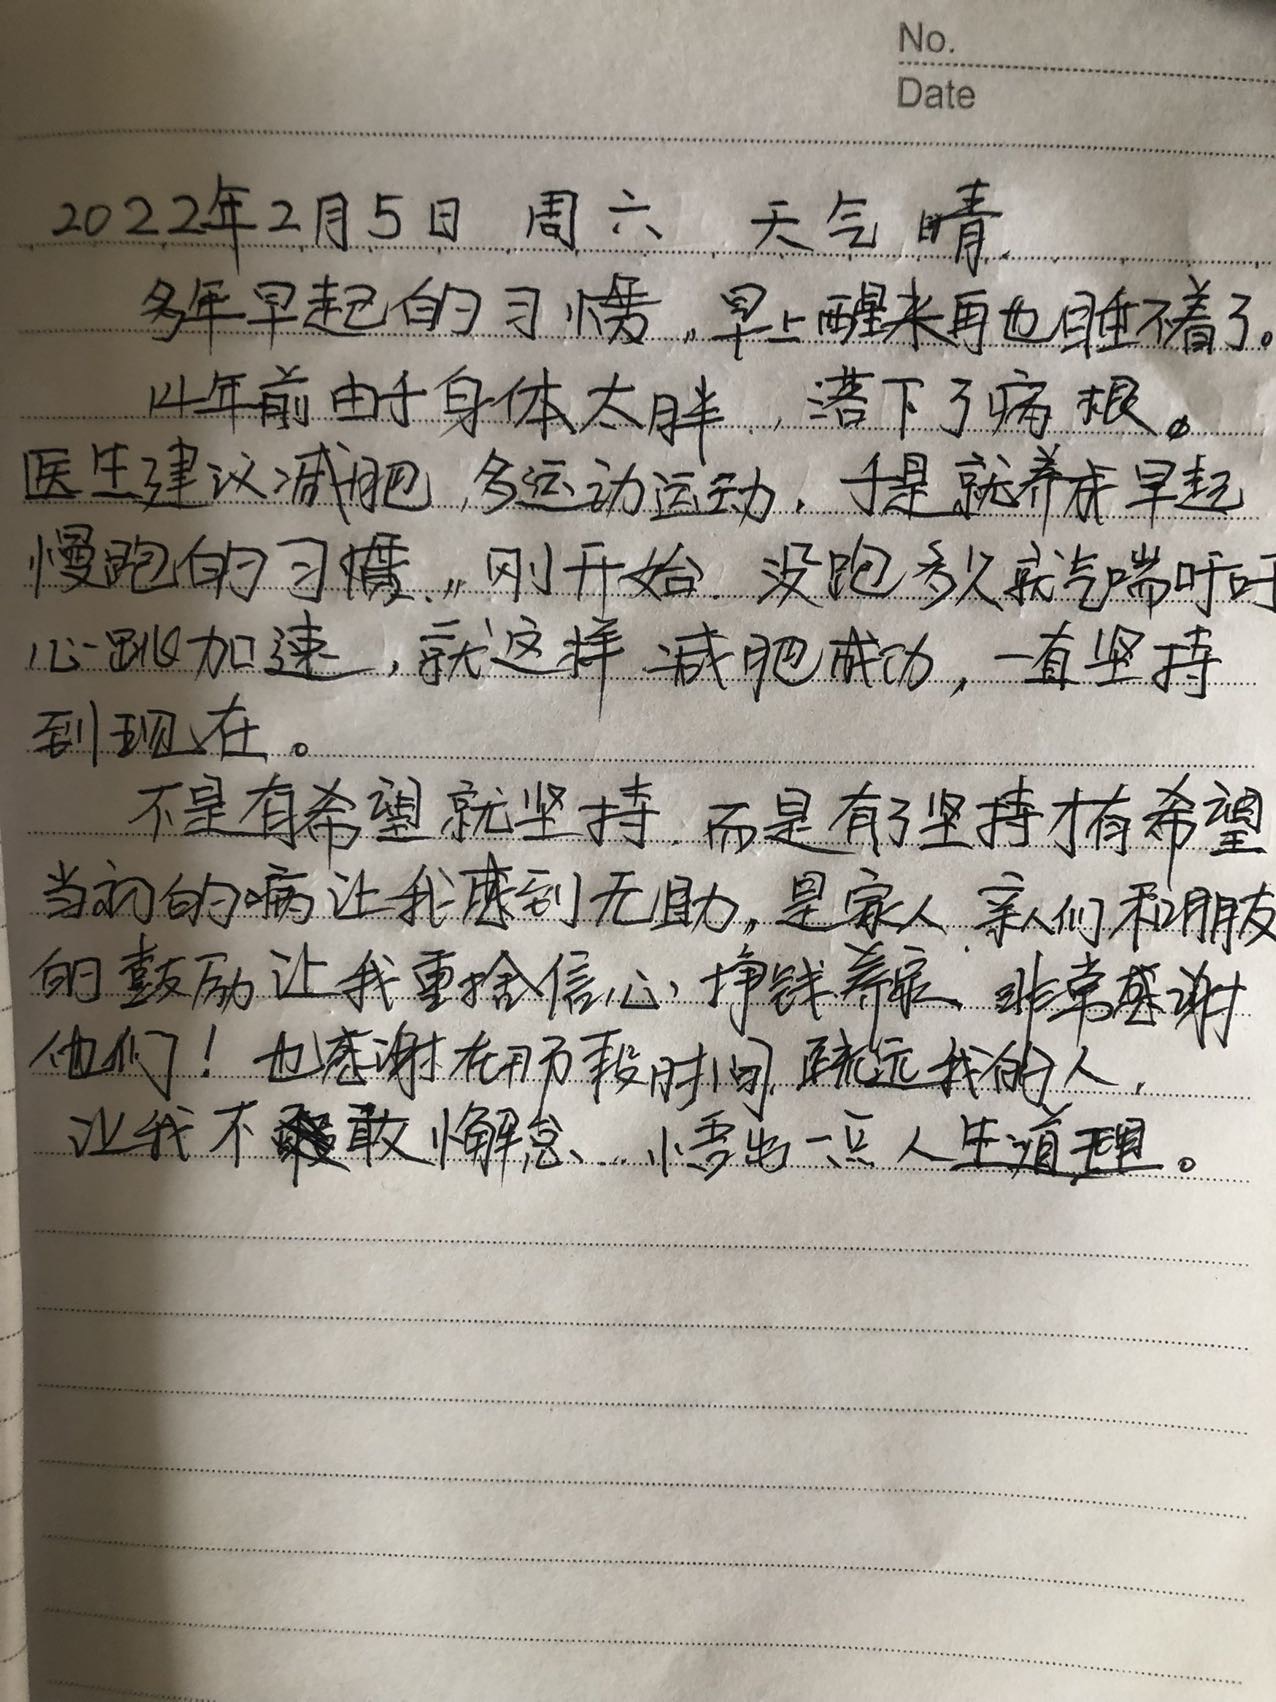 No.
Date
2022年2月5日 周六 天气晴
多年早起的习惯,早上醒来再也睡不着了。
14年前由于身体太胖,落下了病根。
医生建议减肥,多运动运动,于是就养成早起
慢跑的习惯,刚开始.没跑多久就气喘吁吁
心跳加速,就这样减肥成功,一直坚持
到现在。
不是有希望就坚持.而是有了坚持才有希望
当初的病让我感到无助,是家人.亲人们和朋友
的鼓励让我重捨信心,挣钱养家、非常感谢
他们!也感谢在那段时间,疏远我的人,
让我不敢懈怠、悟出一点人生道理。